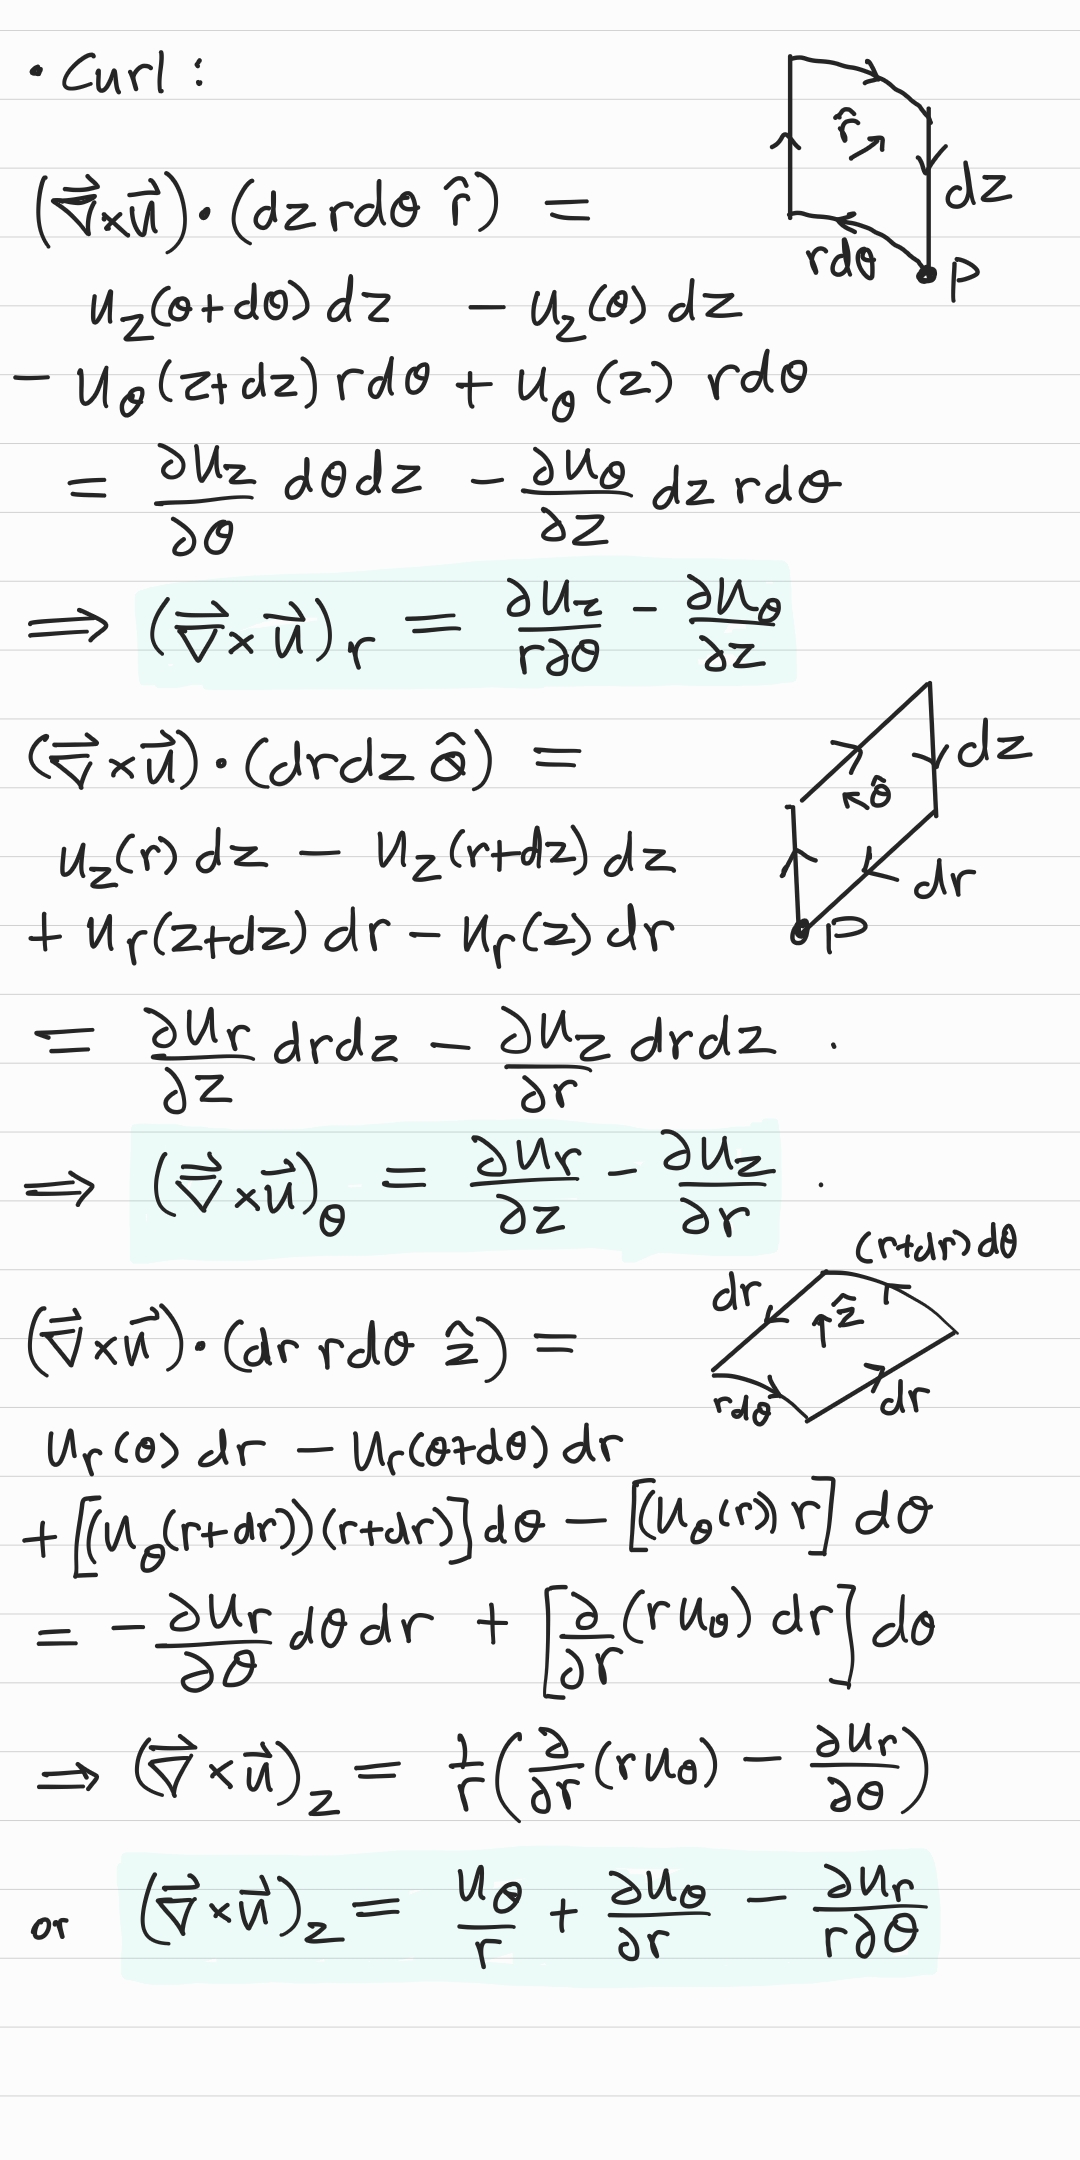 • Curl :
r̂
dz
rdθ
P
(∇⃗×u⃗)·(dz rdθ r̂) =
u_z(θ+dθ) dz − u_z(θ) dz
− u_θ(z+dz) rdθ + u_θ(z) rdθ
= ∂u_z/∂θ dθdz − ∂u_θ/∂z dz rdθ
⟹ (∇⃗×u⃗)_r = ∂u_z/r∂θ − ∂u_θ/∂z
dz
θ̂
dr
P
(∇⃗×u⃗)·(drdz θ̂) =
u_z(r) dz − u_z(r+dz) dz
+ u_r(z+dz) dr − u_r(z) dr
= ∂u_r/∂z drdz − ∂u_z/∂r drdz .
⟹ (∇⃗×u⃗)_θ = ∂u_r/∂z − ∂u_z/∂r .
(r+dr)dθ
dr
ẑ
rdθ
dr
(∇⃗×u⃗)·(dr rdθ ẑ) =
u_r(θ) dr − u_r(θ+dθ) dr
+ [(u_θ(r+dr))(r+dr)] dθ − [(u_θ(r)) r] dθ
= − ∂u_r/∂θ dθ dr + [∂/∂r (r u_θ) dr] dθ
⟹ (∇⃗×u⃗)_z = 1/r (∂/∂r (r u_θ) − ∂u_r/∂θ)
or (∇⃗×u⃗)_z = u_θ/r + ∂u_θ/∂r − ∂u_r/r∂θ